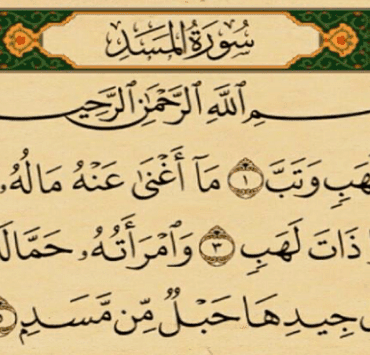 سُورَةُ المَسَدِ
ـمِ ٱللَّهِ ٱلرَّحْمَٰنِ ٱلرَّحِيـ
لَهَبٍ وَتَبَّ ١ مَآ أَغْنَىٰ عَنْهُ مَالُهُۥ
ذَاتَ لَهَبٍ ٣ وَٱمْرَأَتُهُۥ حَمَّالَةَ
جِيدِهَا حَبْلٌ مِّن مَّسَدٍ